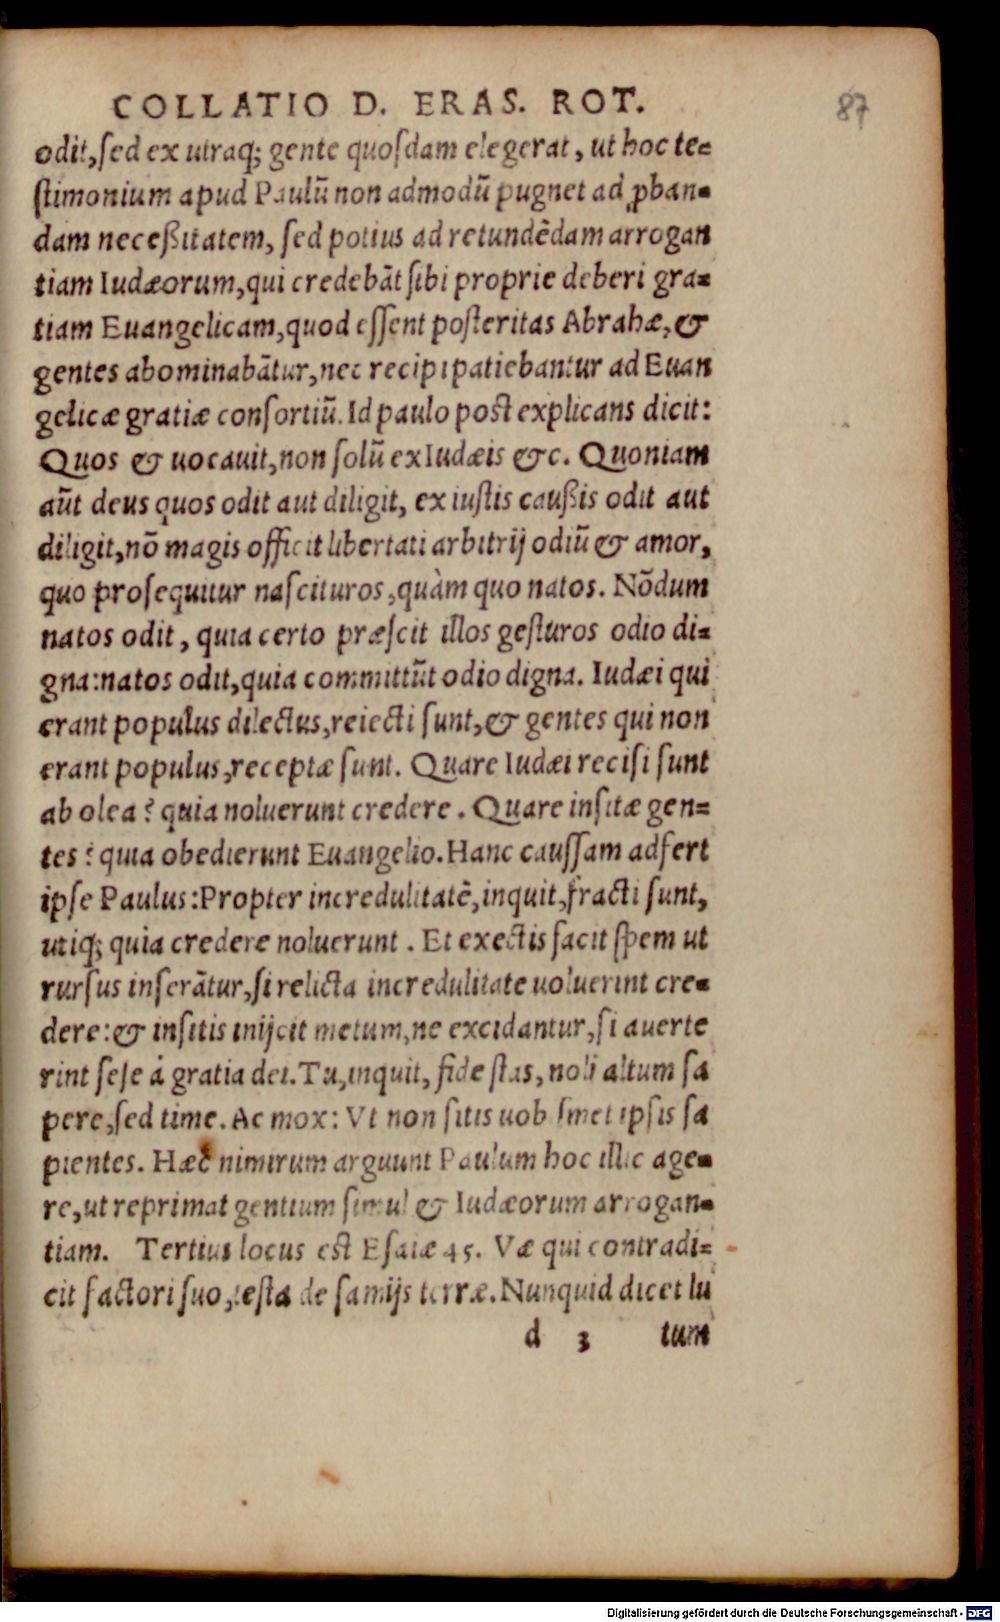 COLLATIO D. ERAS. ROT.
87
odit, sed ex utraq; gente quosdam elegerat, ut hoc te=
stimonium apud Paulũ non admodũ pugnet ad ꝓban=
dam neceßitatem, sed potius ad retundẽdam arrogan
tiam Iudæorum, qui credebãt sibi proprie deberi gra=
tiam Euangelicam, quod essent posteritas Abrahæ, &
gentes abominabãtur, nec recipi patiebantur ad Euan
gelicæ gratiæ consortiũ. Id paulo post explicans dicit:
Quos & uocauit, non solũ ex Iudæis &c. Quoniam
aũt deus quos odit aut diligit, ex iustis caußis odit aut
diligit, nõ magis officit libertati arbitrij odiũ & amor,
quo prosequitur nascituros, quàm quo natos. Nõdum
natos odit, quia certo præscit illos gesturos odio di=
gna: natos odit, quia committũt odio digna. Iudæi qui
erant populus dilectus, reiecti sunt, & gentes qui non
erant populus, receptæ sunt. Quare Iudæi recisi sunt
ab olea? quia noluerunt credere. Quare insitæ gen=
tes? quia obedierunt Euangelio. Hanc caussam adfert
ipse Paulus: Propter incredulitatẽ, inquit, fracti sunt,
utiq; quia credere noluerunt. Et exectis facit spem ut
rursus inserãtur, si relicta incredulitate uoluerint cre=
dere: & insitis inijcit metum, ne excidantur, si auerte
rint sese à gratia dei. Tu, inquit, fide stas, noli altum sa
pere, sed time. Ac mox: Vt non sitis uobismet ipsis sa
pientes. Hæc nimirum arguunt Paulum hoc illic age=
re, ut reprimat gentium simul & Iudæorum arrogan=
tiam. Tertius locus est Esaiæ 45. Væ qui contradi=
cit factori suo, testa de samijs terræ. Nunquid dicet lu
d 3 tum
Digitalisierung gefördert durch die Deutsche Forschungsgemeinschaft - DFG